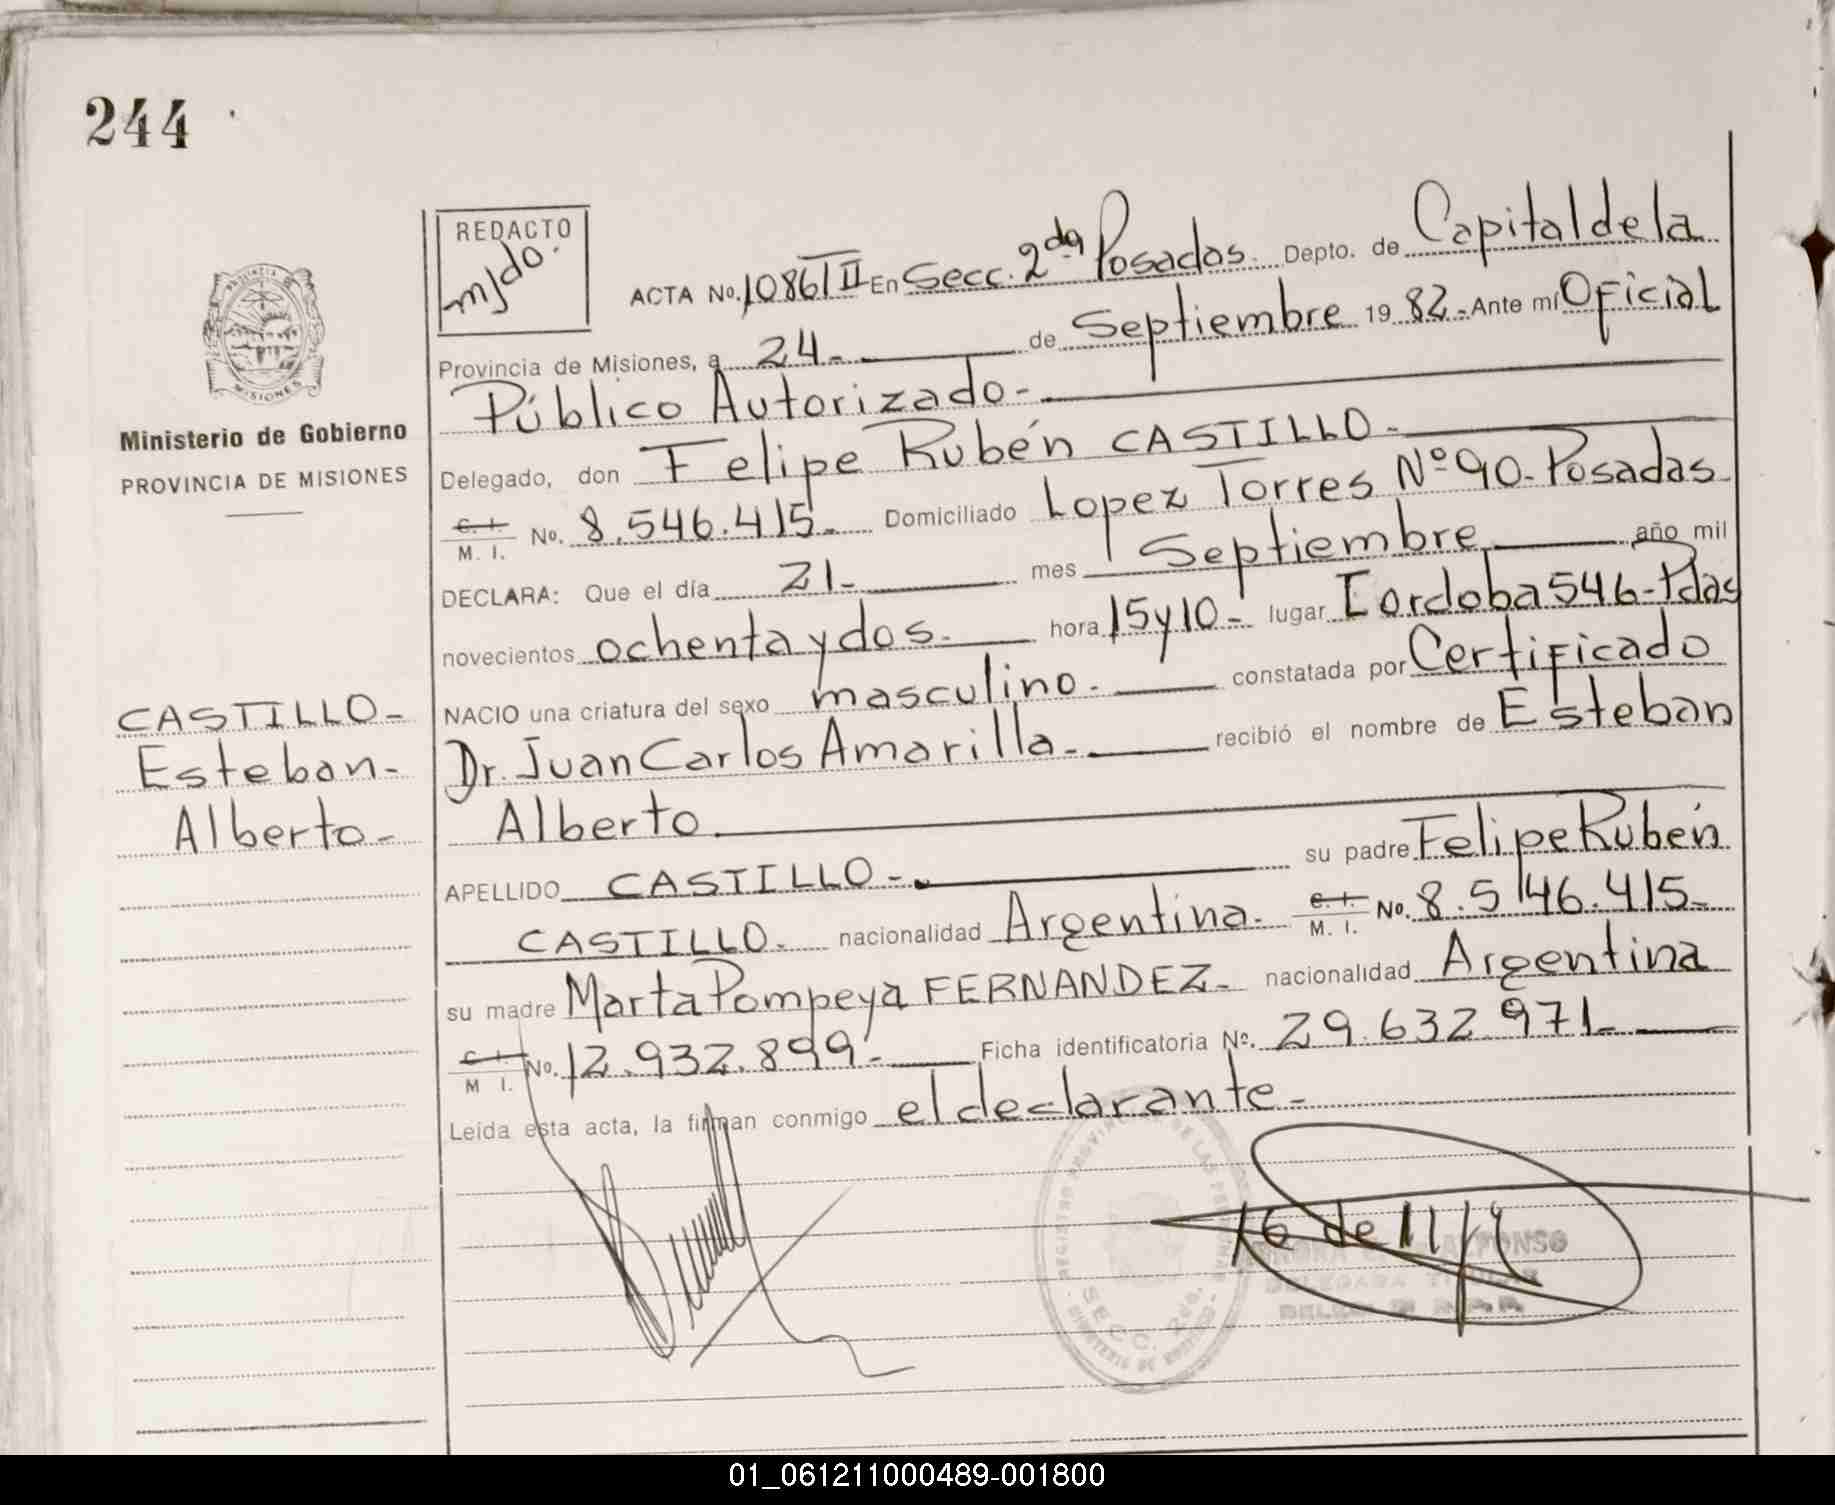 244
REDACTO
mjdo.
ACTA No. 1086/II En Secc. 2da Posadas. Depto. de Capital de la
Provincia de Misiones, a 24.- de Septiembre 19 82.- Ante mí Oficial
Público Autorizado.-
Delegado, don Felipe Rubén CASTILLO.-
C. I. M. I. No. 8.546.415.- Domiciliado Lopez Torres Nº 90.- Posadas
DECLARA: Que el día 21.- mes Septiembre año mil
novecientos ochenta y dos.- hora 15 y 10.- lugar Cordoba 546.- Pdas
NACIO una criatura del sexo masculino.- constatada por Certificado
Dr. Juan Carlos Amarilla.- recibió el nombre de Esteban
Alberto
APELLIDO CASTILLO.- su padre Felipe Rubén
CASTILLO.- nacionalidad Argentina.- C. I. M. I. No. 8.546.415.-
su madre Marta Pompeya FERNANDEZ.- nacionalidad Argentina
C. I. M I. No. 12.932.899.- Ficha identificatoria Nº. 29.632.971.-
Leída esta acta, la firman conmigo el declarante.-
PROVINCIA DE MISIONES
Ministerio de Gobierno
PROVINCIA DE MISIONES
CASTILLO.-
Esteban.-
Alberto.-
REGISTRO PROVINCIAL DE LAS PERSONAS
SECC. 2da.
MINISTERIO DE GOBIERNO
ALFONSO
DELEGADA TITULAR
01_061211000489-001800